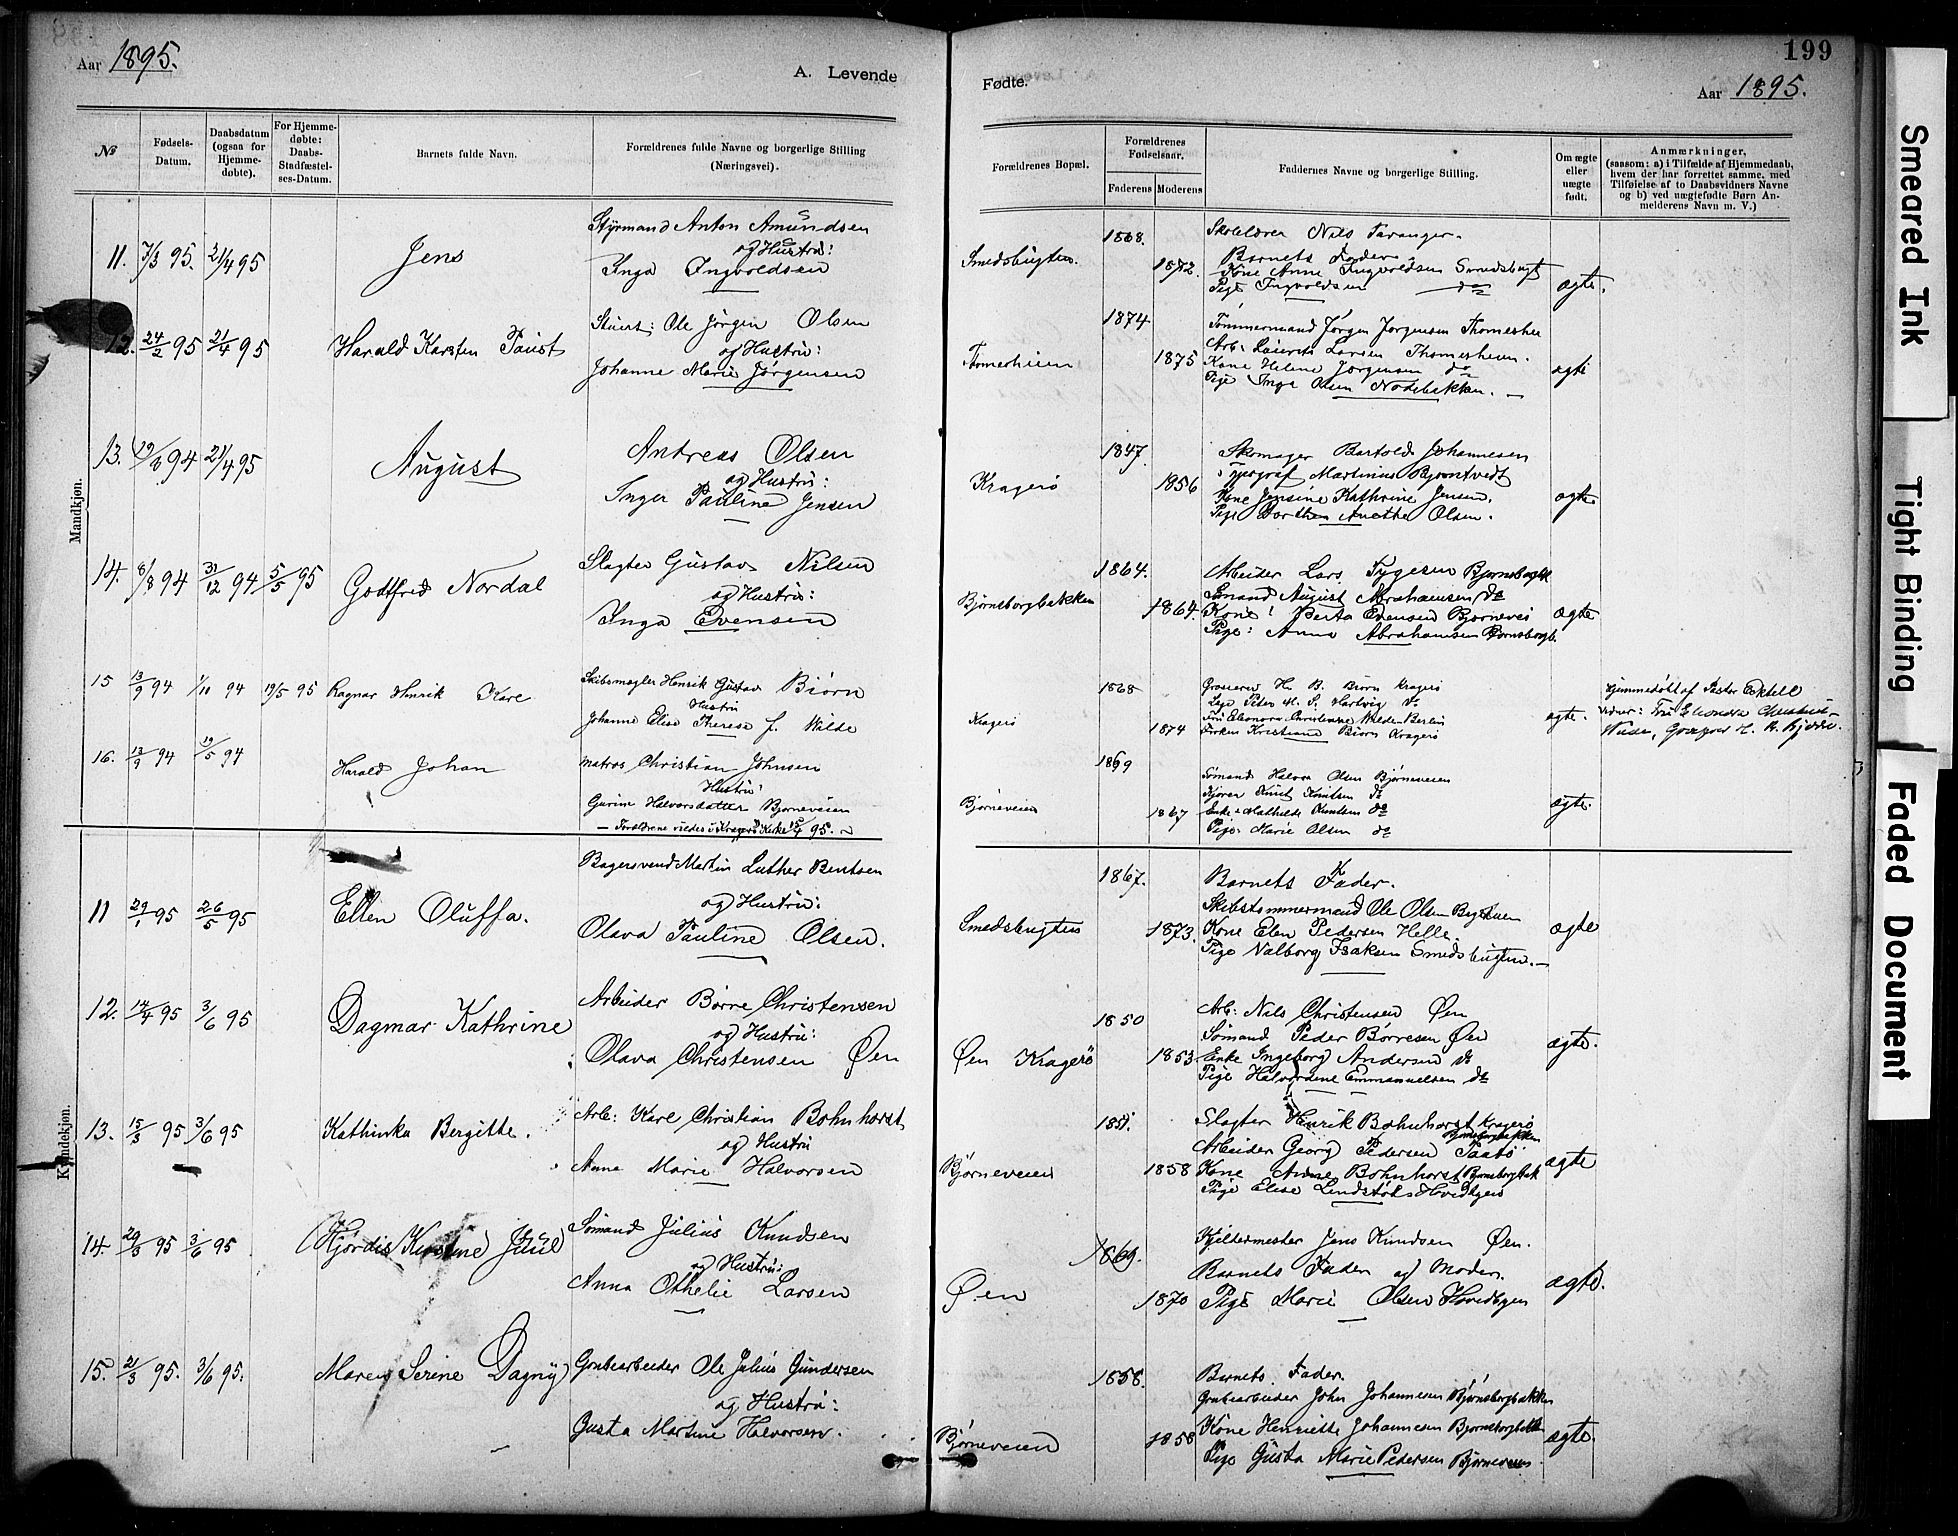 Aar 1895.
A. Levende
Fødte.
199
Aar 1895.
№
Fødsels-Datum.
Daabsdatum (ogsaa for Hjemmedøbte).
For Hjemmedøbte: Daabs-Stadfæstelses-Datum.
Barnets fulde Navn.
Forældrenes fulde Navne og borgerlige Stilling
(Næringsvei).
Forældrenes Bopæl.
Forældrenes Fødselsaar.
Faderens
Moderens
Faddernes Navne og borgerlige Stilling.
Om ægte eller uægte født.
Anmærkninger,
(saasom: a) i Tilfælde af Hjemmedaab,
hvem der har forrettet samme, med
Tilføielse af to Daabsvidners Navne
og b) ved uægtefødte Børn An-
melderens Navn m. V.)
Mandkjøn.
11. 7/3 95. 21/4 95 Jens
Styrmand Anton Amundsen
og Hustru:
Inga Ingvoldsen
Smedsbugten. 1868. 1872.
Skolelærer Nils Taranger.
Barnets Fader.
Kone Anne Ingvoldsen Smedsbugt
Pige Ingvoldsen do
ægte.
12. 24/2 95 21/4 95 Harald Karsten Faust
Stuert: Ole Jörgen Olsen
og Hustru:
Johanne Marie Jørgensen
Thomesheien 1874 1875
Tömmermand Jørgen Jørgensen Thomeshei
Arb: Laurits Larsen Thomesheien.
Kone Helene Jørgensen do
Pige Inga Olsen Nodebakken.
ægte
13. 94 21/4 95 August
Andreas Olsen
og Hustru:
Inger Pauline Jensen
Kragerö 1847. 1856
Skomager Bartold Johannesen
Typograf Martinius Bjorntvedt
Kone Jensine Kathrine Jensen.
Pige Dorthea Anetha Olsen.
ægte
14. 8/8 94 31/12 94 5/5 95 Gottfred Nordal
Slagter Gustav Nilsen
og Hustru:
Inga Evensen
Bjørnsborgbakken 1864. 1864.
Arbeider Lars Tygesen Bjornsborgbk
Sømand August Abrahamsen do
Kone: Berta Evensen Bjornevei
Pige: Anna Abrahamsen Bjornsborgb.
ægte
15 13/9 94 1/10 94 19/5 95 Ragnar Henrik Kare
Skibsmægler Henrik Gustav Biørn
Hustru
Johanne Elise Therese f. Wilde
Kragerö 1868 1874
Grosserer H. B. Biorn Kragerö
Læge Peder M. S. Hartvig do
Fru Eleonora Christianne Wilde Berlin
Frøken Kristiane Biørn Kragerö
ægte.
Hjemmedøbt af Pastor
Vidner: Fru Elonora
Wilde, Grosserer H. B. Bjørn.
16. 13/9 94 19/5 94 Harald Johan
Matros Christian Johnsen
Hustru
Gurine Halvorsdatter Bjorneveien
— Forældrene viedes i Kragerö Kirke 95.
Bjørneveien 1869 1867
Sømand Halvor Olsen Bjørneveien
Knut Knutsen do
Enke Mathilde Knutsen do
Pige. Marie Olsen do
ægte.
Kvindekjøn.
11 29/1 95 26/5 95 Ellen Oluffa.
Bagersvend Martin Luther Bentsen
og Hustru:
Olava Pauline Olsen.
Smedsbugten 1867. 1873.
Barnets Fader.
Skibstømmermand Ole Olsen
Kone Elen Pedersen Helle.
Pige Valborg Isaksen Smedsbugten.
ægte
12. 14/4 95 3/6 95 Dagmar Kathrine
Arbeider Börre Christensen
og Hustru:
Olava Christensen Øen
Øen Kragerö 1850 1853
Arb: Nils Christensen Øen
Sømand Peder Børresen Øen
Enke Ingeborg Andersen do
Pige Halvordine Emmanuelsen do
ægte.
13. 15/3 95 3/6 95 Kathinka Bergitte.
Arb: Karl Christian Bohnhorst
og Hustru
Anne Marie Halvorsen
Bjørneveien 185. 1858
Slagter Henrik Bohnhorst Kragerö
Arbeider Georg Pedersen Taatö
Kone Anne Bohnhorst Bjornsborgbak
Pige Elise Lindstøl
ægte
14. 29/3 95 3/6 95 Hjördis Kirstine Juul
Sømand Julius Knudsen
og Hustru:
Anna Othelie Larsen
Øen 1869. 1870
Kjeldermester Jens Knudsen Øen.
Barnets Fader og Moder.
Pige Marie Olsen Hovedbyen
ægte.
15. 21/3 95. 3/6 95. Maren Serine Dagny
Grubearbeider Ole Julius Gundersen
og Hustru:
Gusta Martine Halvorsen.
Bjørneveien 1858. 1858
Barnets Fader.
Grubearbeider John Johannesen Bjørnsborgbakken
Kone Henriette Johannesen Bjornsborgbakk
Pige Gusta Marie Pedersen Bjørneveien.
ægte.
Smeared Ink
Tight Binding
Faded Document